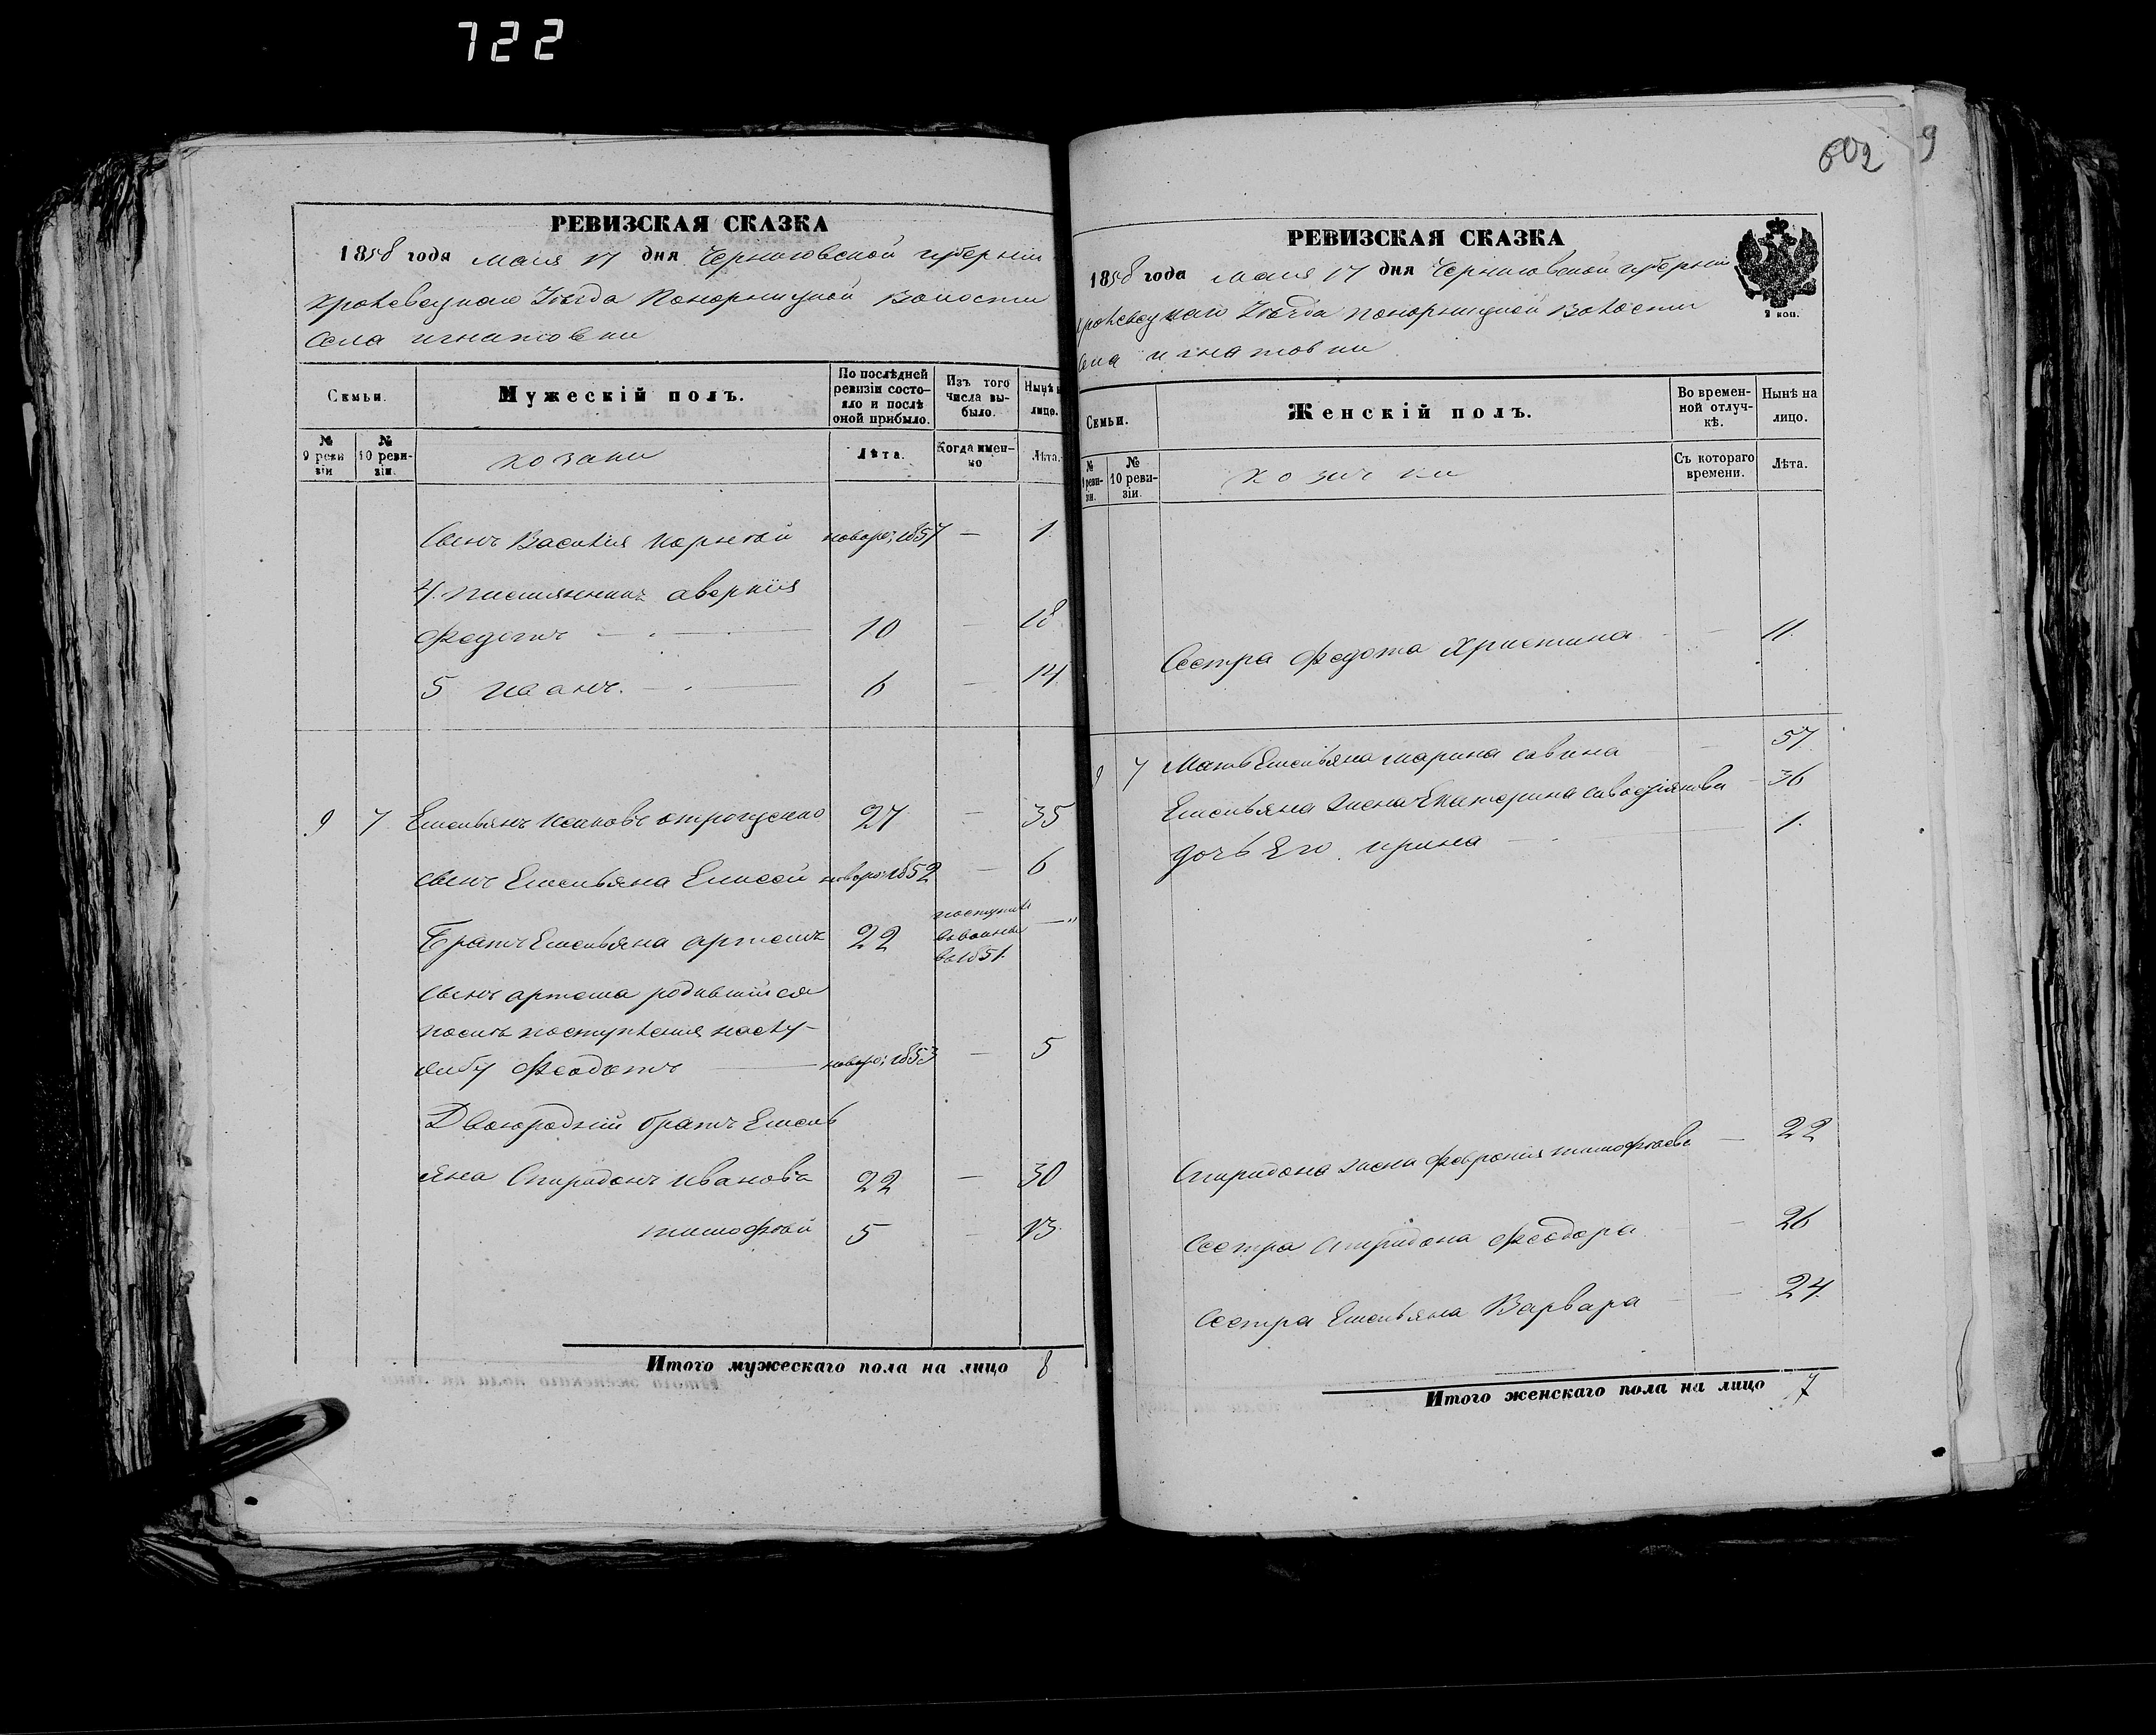 722
602 9
РЕВИЗСКАЯ СКАЗКА
1858 года Мая 17 дня Черниговской губерніи
Кролевецкаго Уѣзда Понорницкой Волости
Села Игнатовки
Семьи.
Мужескій полъ.
По послѣдней ревизіи состояло и послѣ оной прибыло.
Изъ того числа выбыло.
Нынѣ на лицо.
№ 9 ревизіи
№ 10 ревизіи.
козаки
Лѣта.
Когда именно
Лѣта.
Сынъ Василія Корнѣй новоро: 1857 — 1.
4. племянникъ аверкія
Федотъ — 10 — 18
5 Иванъ. — 6 — 14
9 7 Емельянъ Исаковъ 27 — 35
сынъ Емельяна Елисей новоро: 1852 — 6
Братъ Емельяна артемъ 22 поступилъ
въ 1851. — "
сынъ артема родившійся
послѣ поступленія наслу-
жбу Феодотъ — новоро: 1853 — 5
Двоюродній братъ Емель
яна Спиридонъ Ивановъ 22 — 30
тимофѣй 5 — 13.
Итого мужескаго пола на лицо 8
РЕВИЗСКАЯ СКАЗКА
1858 года Мая 17 дня Черниговской губерніи
Кролевецкаго Уѣзда Понорницкой Волости
Села Игнатовки
2 коп.
Семьи.
Женскій полъ.
Во временной отлучкѣ.
Нынѣ на лицо.
№ 9 ревизіи.
№ 10 ревизіи.
козачки
Съ котораго времени.
Лѣта.
Сестра Федота Христина — 11.
9 7 Мать Емельяна марина савина — 57
Емельяна жена Екатерина — 36
дочь Его ирина — 1.
Спиридона жена Феврония тимофѣева — 22
Сестра Спиридона Феодора — 26
Сестра Емельяна Варвара — 24.
Итого женскаго пола на лицо 7